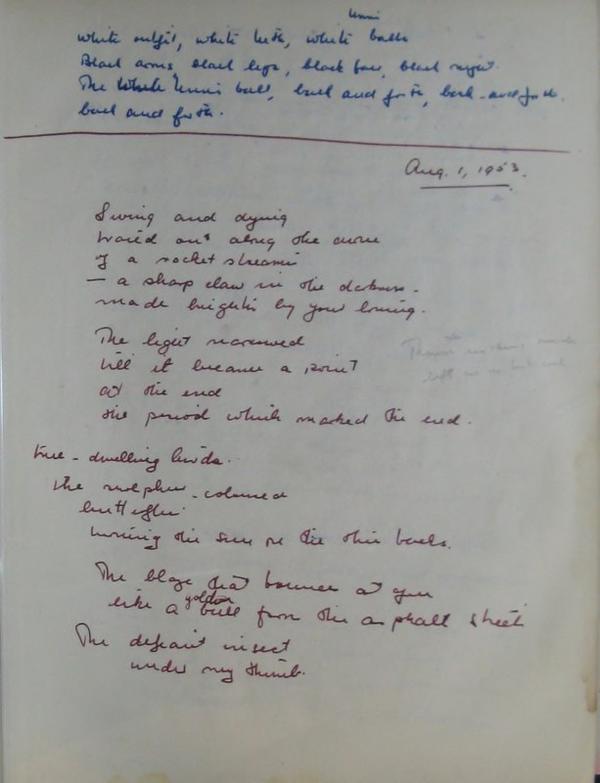 tennis
white outfit, white teeth, white balls
Black arms, black legs, black face, black night.
The white tennis ball, back and forth, back-and-forth.
back and forth.
Aug. 1, 1953.
Living and dying
traced out along the curve
of a rocket stream
— a sharp claw in the darkness.
made brighter by your loving.
The light narrowed
till it became a point
at the end
the period which marked the end.
tree-dwelling birds.
the sulphur-coloured
butterflies
turning the sun on the their backs.
The blaze that bounces at you
golden
like a ball from the asphalt street
The defiant insect
under my thumb.